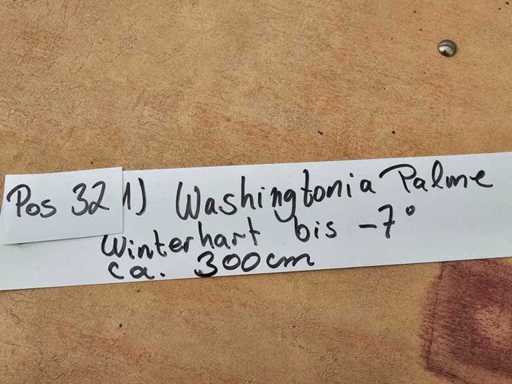 Pos 32 1) Washingtonia Palme
Winterhart bis -7°
ca. 300cm